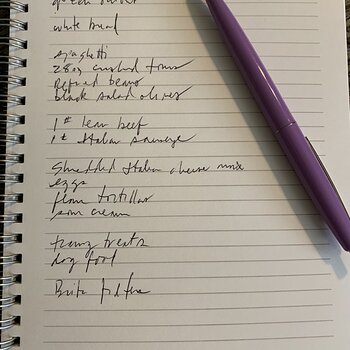 green onions
white bread
spaghetti
28oz crushed toms
refried beans
black salad olives
1# lean beef
1# Italian sausage
Shredded Italian cheese mix
eggs
flour tortillas
sour cream
treats
dog food
Brita